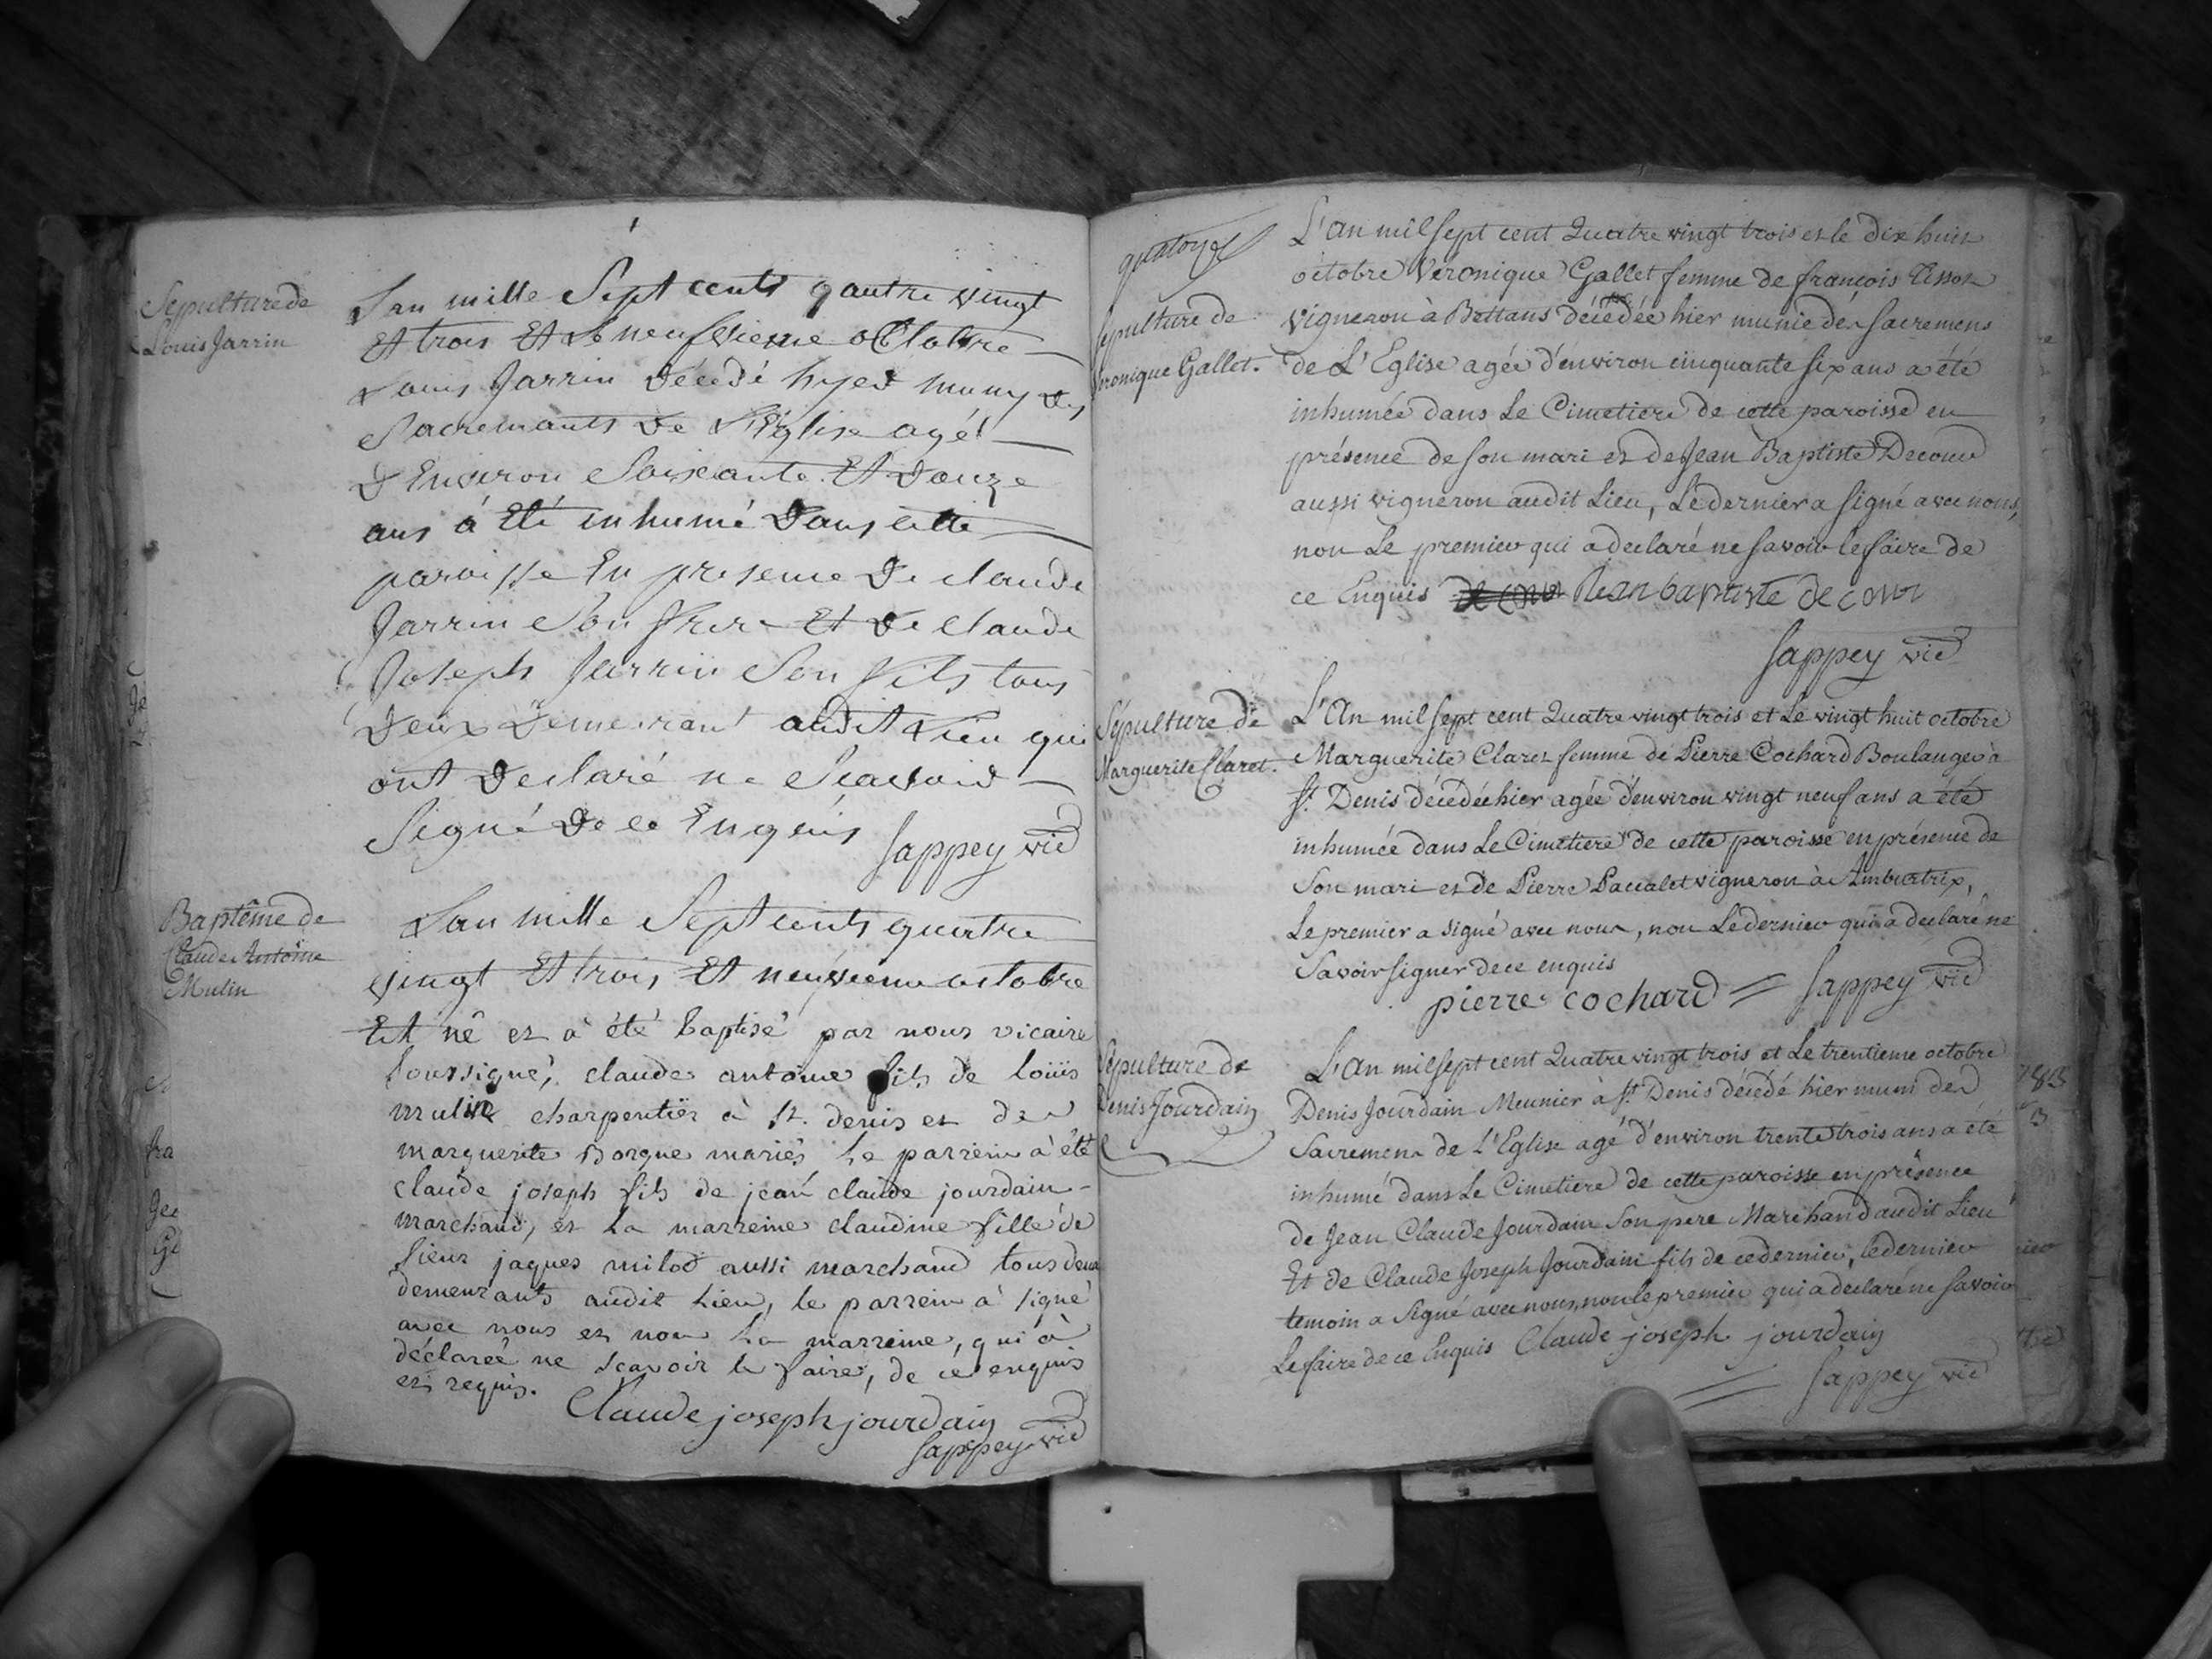 Sepulture de
Louis Jarrin
Lan mille Sept cents qautre vingt
Et trois Et Le neufvieme octobre
Louis Jarrin décédé hyer muny des
Sacremants de L'Eglise agé
d'Environ Soixante Et douze
ans á Eté inhumé dans cette
paroisse En presence de claude
Jarrin Son frere Et de claude
Joseph Jarrin Son fils tous
deux demeurant audit Lieu qui
ont declaré ne Scavoir
Signé de ce Enquis
Sappey vic
Baptême de
Claude Antoine
Mulin
Lan mille Sept cents quatre
vingt Et trois Et neufvieme octobre
Est nê et à été baptisé par nous vicaire
soussigné, claude antoine fils de loüis
mulin charpentier à st. denis et de
marguerite Borque mariés le parrein à été
claude joseph fils de jean claude jourdain
marchand, et la marreine claudine fille de
sieur jaques milod aussi marchand tous deux
demeurants audit lieu, le parrein à signé
avec nous et non la marreine, qui à
déclareé ne scavoir le faire, de ce enquis
et requis.
Claude joseph jourdain
Sappey vic
quatorze
Sepulture de
Veronique Gallet.
L'An mil sept cent Quatre vingt trois et le dix huit
octobre Véronique Gallet femme de françois Tissot
vigneron à Bettans décédée hier munie des sacremens
de L'Eglise agée d'environ cinquante six ans a été
inhumée dans Le Cimetiere de cette paroisse en
présence de son mari et de Jean Baptiste Decour
aussi vigneron audit Lieu, Le dernier a signé avec nous,
non Le premier qui a declaré ne savoir le faire de
ce Enquis de cour Jean baptiste de cour
Sappey vic
Sépulture de
Marguerite Claret.
L'An mil sept cent Quatre vingt trois et Le vingt huit octobre
Marguerite Claret femme de Pierre Cochard Boulanger à
St. Denis décédée hier agée d'environ vingt neuf ans a été
inhumée dans Le Cimetiere de cette paroisse en présence de
Son mari et de Pierre Paccalet vigneron à Ambutrix,
Le premier a signé avec nous, non Le dernier qui a declaré ne
Savoir signer de ce enquis
pierre cochard = Sappey vic
Sépulture de
Denis Jourdain
L'An mil sept cent Quatre vingt trois et Le trentieme octobre
Denis Jourdain Meunier à St. Denis décédé hier muni des
Sacremens de L'Eglise agé d'environ trente trois ans a été
inhumé dans Le Cimetiere de cette paroisse en présence
de Jean Claude Jourdain Son pere Marchand audit Lieu
Et de Claude Joseph Jourdain fils de ce dernier, le dernier
temoin a Signé avec nous, non le premier qui a declaré ne savoir
Le faire de ce Enquis Claude joseph jourdain
= Sappey vic